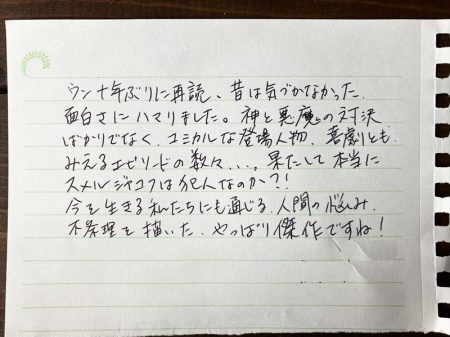 ウン十年ぶりに再読、昔は気づかなかった
面白さにハマりました。神と悪魔の対決
ばかりでなく、コミカルな登場人物、喜劇とも
みえるエピソードの数々…。果たして本当に
スメルジャコフは犯人なのか?!
今を生きる私たちにも通じる、人間の悩み、
不条理を描いた、やっぱり傑作ですね!